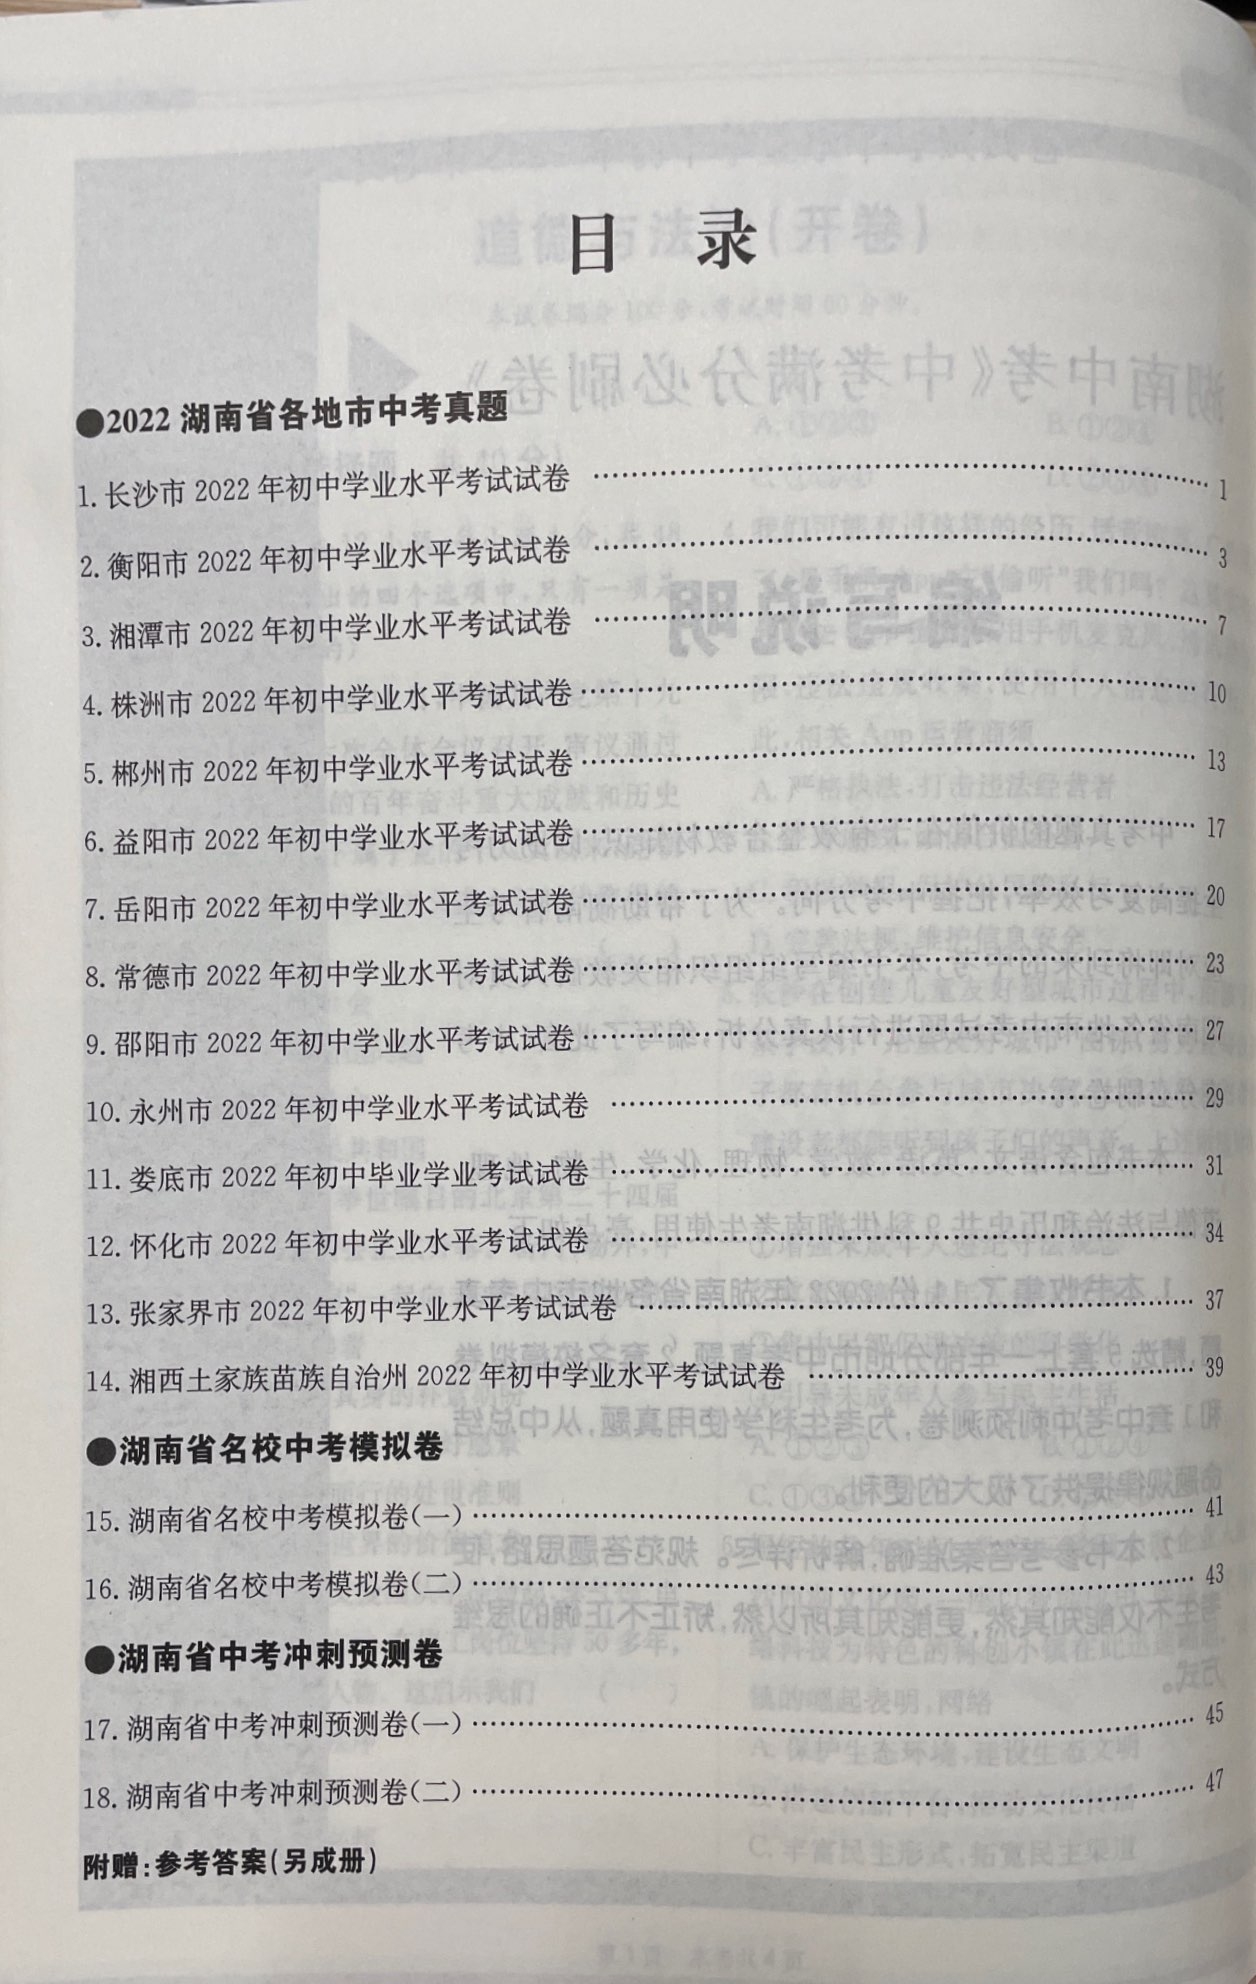 目 录
●2022 湖南省各地市中考真题
1. 长沙市 2022 年初中学业水平考试试卷 …… 1
2. 衡阳市 2022 年初中学业水平考试试卷 …… 3
3. 湘潭市 2022 年初中学业水平考试试卷 …… 7
4. 株洲市 2022 年初中学业水平考试试卷 …… 10
5. 郴州市 2022 年初中学业水平考试试卷 …… 13
6. 益阳市 2022 年初中学业水平考试试卷 …… 17
7. 岳阳市 2022 年初中学业水平考试试卷 …… 20
8. 常德市 2022 年初中学业水平考试试卷 …… 23
9. 邵阳市 2022 年初中学业水平考试试卷 …… 27
10. 永州市 2022 年初中学业水平考试试卷 …… 29
11. 娄底市 2022 年初中毕业学业考试试卷 …… 31
12. 怀化市 2022 年初中学业水平考试试卷 …… 34
13. 张家界市 2022 年初中学业水平考试试卷 …… 37
14. 湘西土家族苗族自治州 2022 年初中学业水平考试试卷 …… 39
●湖南省名校中考模拟卷
15. 湖南省名校中考模拟卷(一) …… 41
16. 湖南省名校中考模拟卷(二) …… 43
●湖南省中考冲刺预测卷
17. 湖南省中考冲刺预测卷(一) …… 45
18. 湖南省中考冲刺预测卷(二) …… 47
附赠:参考答案(另成册)